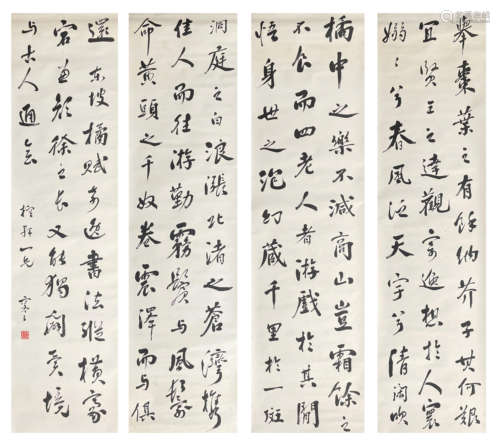 舉棗葉之有餘納芥子其何艱
宜賢王之達觀寄逸想於人寰
嫋〻兮春風泛天宇兮清閟吹
橘中之樂不減商山豈霜餘之
不食而四老人者游戲於其閒
悟身世之泡幻藏千里於一斑
洞庭之白浪漲北渚之蒼灣攜
佳人而往游勤霧鬢与風鬟
命黃頭之千奴卷震澤而与俱
還 東坡橘賦 書法縱橫豪
宕 顏徐之長又能獨闢異境
与古人通
一兄